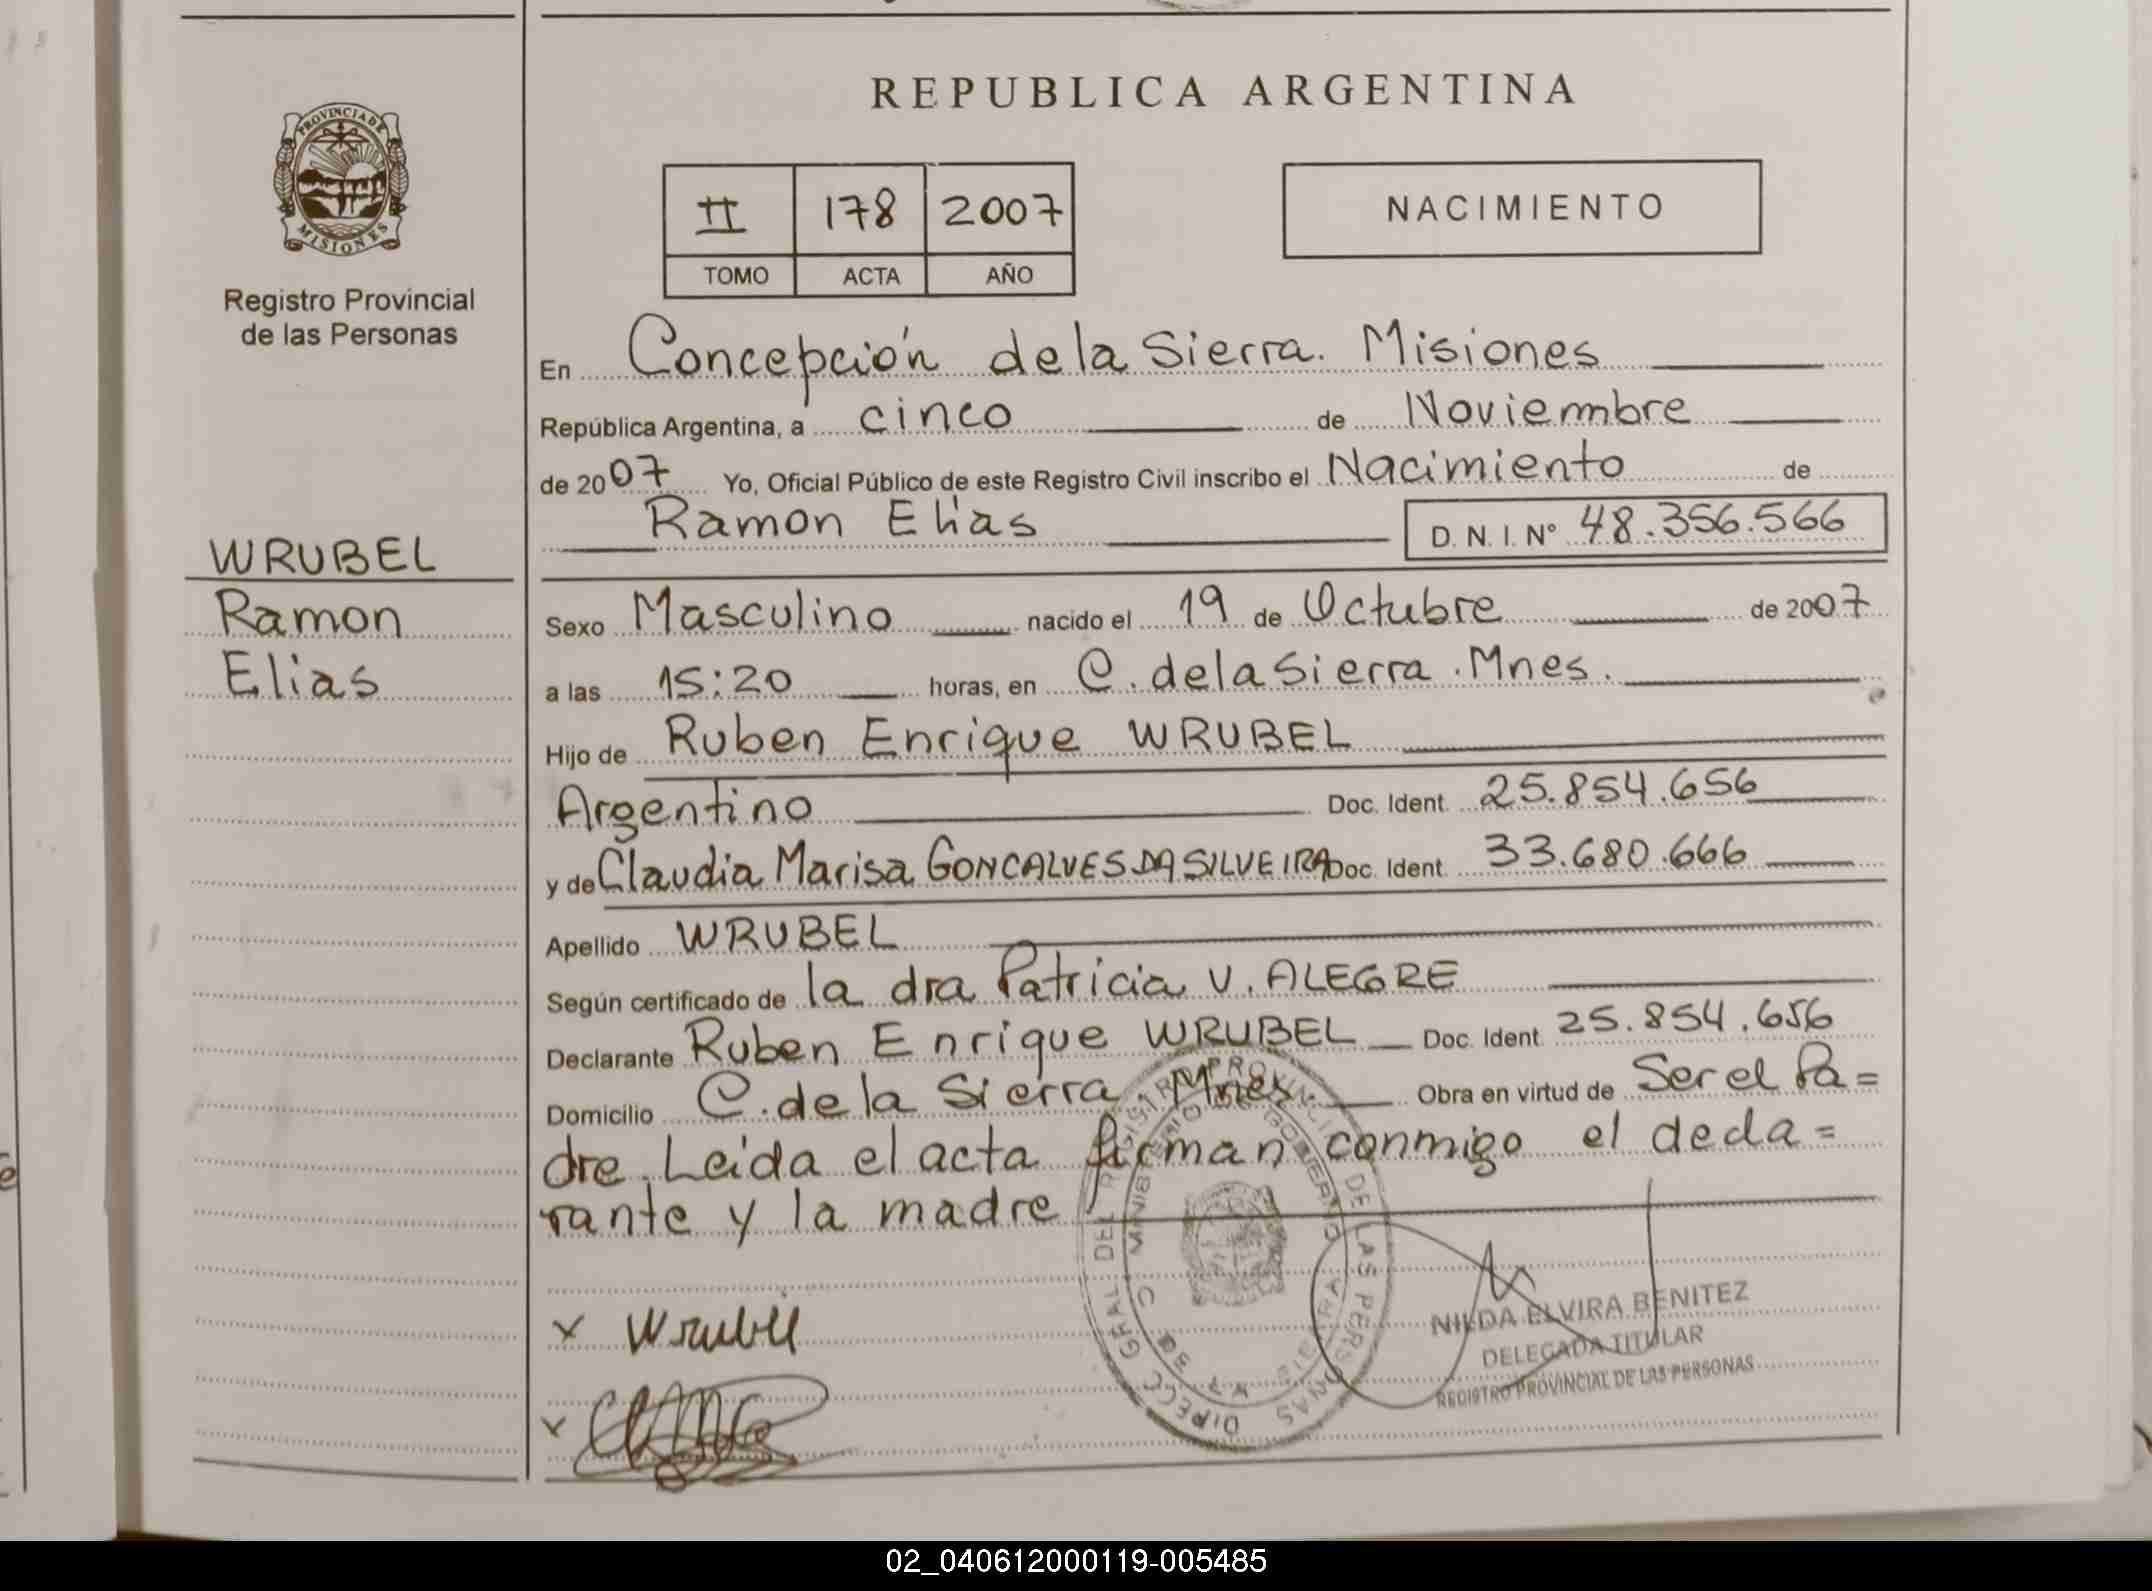 REPUBLICA ARGENTINA
PROVINCIA DE
MISIONES
Registro Provincial
de las Personas
II 178 2007
TOMO ACTA AÑO
NACIMIENTO
En Concepción de la Sierra. Misiones
República Argentina, a cinco de Noviembre
de 2007 Yo, Oficial Público de este Registro Civil inscribo el Nacimiento de
Ramon Elias D. N. I. Nº 48.356.566
WRUBEL
Ramon
Elias
Sexo Masculino nacido el 19 de Octubre de 2007
a las 15:20 horas, en C. de la Sierra. Mnes.
Hijo de Ruben Enrique WRUBEL
Argentino Doc. Ident. 25.854.656
y de Claudia Marisa GONCALVES DA SILVEIRA Doc. Ident. 33.680.666
Apellido WRUBEL
Según certificado de la dra Patricia V. ALEGRE
Declarante Ruben Enrique WRUBEL Doc. Ident. 25.854.656
Domicilio C. de la Sierra. Mnes. Obra en virtud de Ser el Pa=
dre. Leida el acta firman conmigo el decla=
rante y la madre
x Wrubel
x
DIRECC GRAL DEL REGISTRO PROVINCIAL DE LAS PERSONAS
MINISTERIO DE GOBIERNO
NILDA ELVIRA BENITEZ
DELEGADA TITULAR
REGISTRO PROVINCIAL DE LAS PERSONAS
02_040612000119-005485